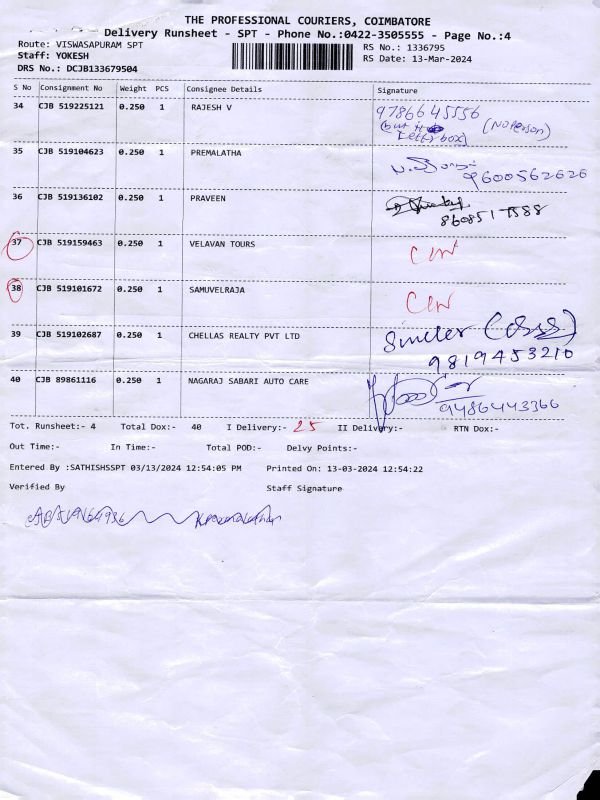 THE PROFESSIONAL COURIERS, COIMBATORE
Delivery Runsheet - SPT - Phone No.:0422-3505555 - Page No.:4
Route: VISWASAPURAM SPT
RS No.: 1336795
Staff: YOKESH
RS Date: 13-Mar-2024
DRS No.: DCJB133679504
S No Consignment No Weight PCS Consignee Details Signature
34 CJB 519225121 0.250 1 RAJESH V 9786645556
(NO Person)
Letter box)
35 CJB 519104623 0.250 1 PREMALATHA
9600562626
36 CJB 519136102 0.250 1 PRAVEEN
37 CJB 519159463 0.250 1 VELAVAN TOURS
38 CJB 519101672 0.250 1 SAMUVELRAJA
39 CJB 519102687 0.250 1 CHELLAS REALTY PVT LTD
9819453210
40 CJB 89861116 0.250 1 NAGARAJ SABARI AUTO CARE
9486443366
Tot. Runsheet:- 4 Total Dox:- 40 I Delivery:- 25 II Delivery:- RTN Dox:-
Out Time:- In Time:- Total POD:- Delvy Points:-
Entered By :SATHISHSSPT 03/13/2024 12:54:05 PM Printed On: 13-03-2024 12:54:22
Verified By Staff Signature